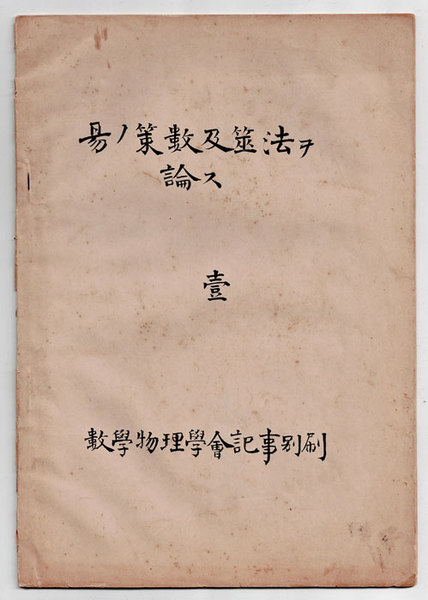 易ノ策數及筮法ヲ
論ス
壹
數學物理學會記事別刷